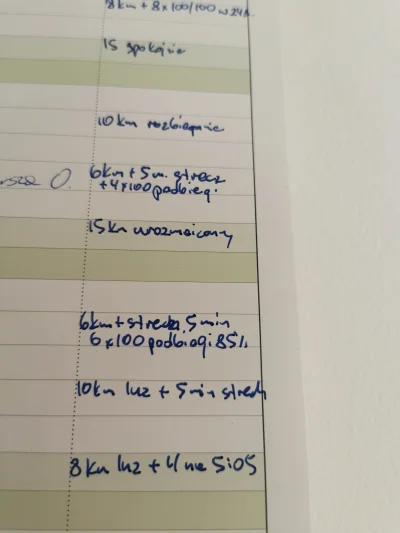 8km + 8x100/100 w 24s.
15 spokojnie
10km rozbieganie
6km + 5m. strecz
rsza O.
+ 4x100 podbiegi
15km urozmaicony
6km + strecz. 5min
6x100 podbiegi 85%
10km luz + 5min strech
8km luz + 4 na 5:05